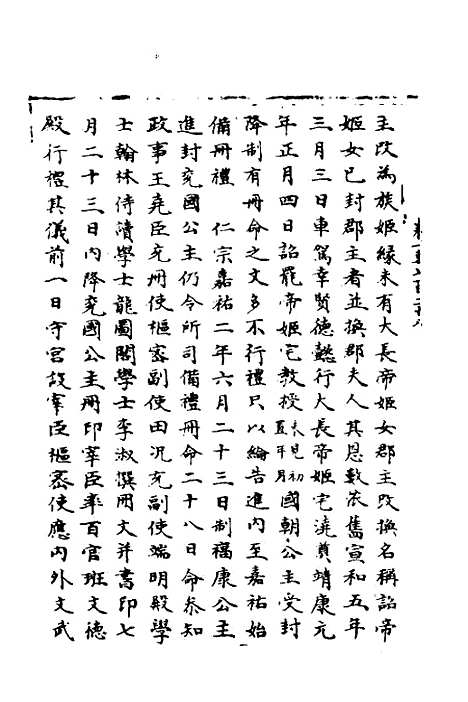 主改為族姬緣未有大長帝姬女郡主改換名稱詔帝
姬女已封郡主者並換郡夫人其恩數依舊宣和五年
三月三日車駕幸賢德懿行大長帝姬宅澆奠靖康元
年正月四日詔罷帝姬宅教授未見初置年月國朝公主受封
降制有冊命之文多不行禮只以綸告進內至嘉祐始
備冊禮　仁宗嘉祐二年六月二十三日制福康公主
進封兗國公主仍令所司備禮冊命二十八日命參知
政事王堯臣充冊使樞密副使田況充副使端明殿學
士翰林侍讀學士龍圖閣學士李淑撰冊文并書印七
月二十三日內降兗國公主冊印宰臣率百官班文德
殿行禮其儀前一日守宮設宰臣樞密使應內外文武